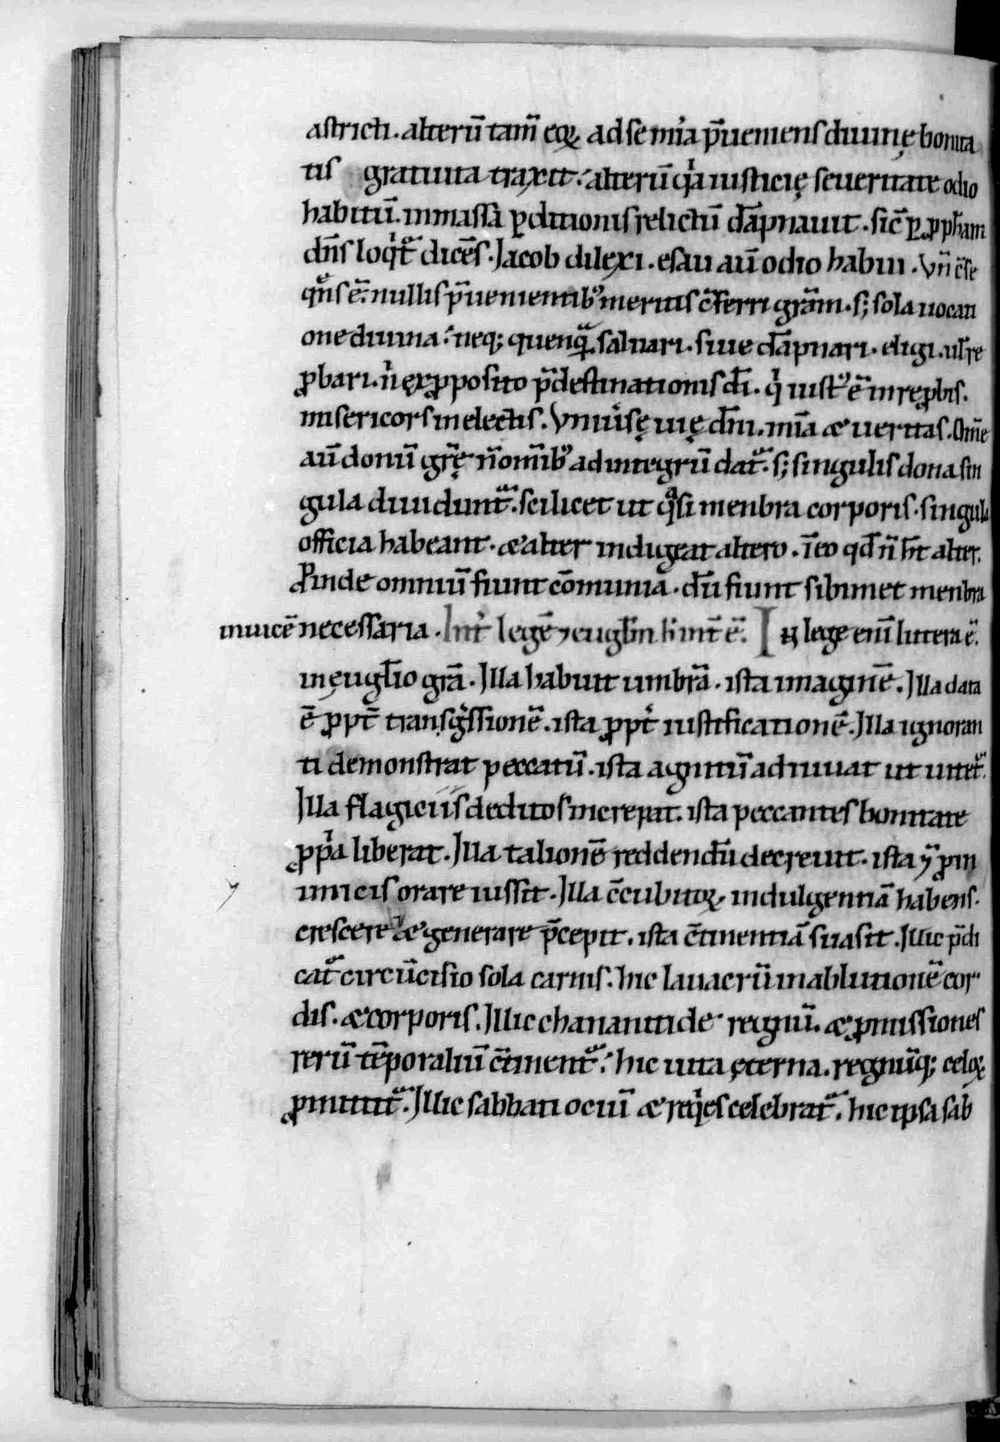 astricti. alterū tam̄ eoꝝ ad se mīa p̄ueniens diuinę bonita
tis gratuita traxit. alterū q̇a iusticię seueritate odio
habitū. in massa ꝑditionis relictū dāpnauit. sic̄ ꝑ ꝓph̄am
dn̄s loqͥt̄ dicēs. Jacob dilexi. esau aū odio habui. Vn̄ c̄se
qͥns ē. nullis p̄uenientibꝰ meritis c̄ferri grām. s; sola uocati
one diuina. neq; quenqͣ. saluari. siue dāpnari. eligi. ul̄ re
ꝓbari. n̄ ęx ꝓposito p̄destinationis dī. qͥ iustꝰ ē in reꝓbis.
misericors in electis. Vniuͥsę uię dn̄i. mīa æ ueritas. Om̄e
aū donū gr̄ę n̄ om̄ibꝰ ad integrū datͣ. s; singulis dona sin
gula diuiduntͣ. scilicet ut qͣsi menbra corporis. singula
officia habeant. æ alter indigeat altero. īeo qd̄ n̄ h̄t alter.
Ꝓinde omniū fiunt cōmunia. dū fiunt sibimet menbra
inuicē necessaria. Intͥ legē ⁊ eugl̄m h̄ int̄ ē. Iɴ lege enī littera ē.
in ęugl̄io grā. Illa habuit umbrā. ista imaginē. Illa data
ē ꝓpt̄ transgͥssionē. ista ꝓptͥ iustificationē. Illa ignoran
ti demonstrat peccatū. ista agnitū adiuuat ut uitetͣ.
Illa flagiciis deditos increpat. ista peccantes bonitate
ꝓpͥa liberat. Illa talionē reddendū decreuit. ista ⁊ ꝓ in
imicis orare iussit. Illa c̄cubitoꝝ indulgentiā habens.
crescere æ generare p̄cepit. ista c̄tinentiā suasit. Illic p̄di
catͣ circūcisio sola carnis. hic lauacrū in ablutionē cor
dis. æ corporis. Illic chananitide regnū. æ ꝓmissiones
rerū tēporaliū c̄tinentͣ. hic uita ęterna. regnūq; celoꝝ
ꝓmittitͣ. Illic sabbati ociū æ reqͥes celebratͣ. hic ipsa sab